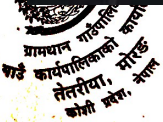 ग्रामथान गाउँपालिका
गाउँ कार्यपालिकाको कार्या
तेतरीया, मोरङ
कोशी प्रदेश, नेपाल